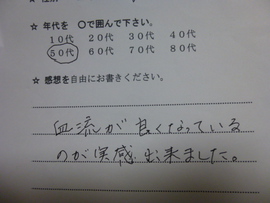 ☆ 年代を 〇で囲んで下さい。
10代 20代 30代 40代
50代 60代 70代 80代
☆ 感想を自由にお書きください。
血流が良くなっている
のが実感出来ました。